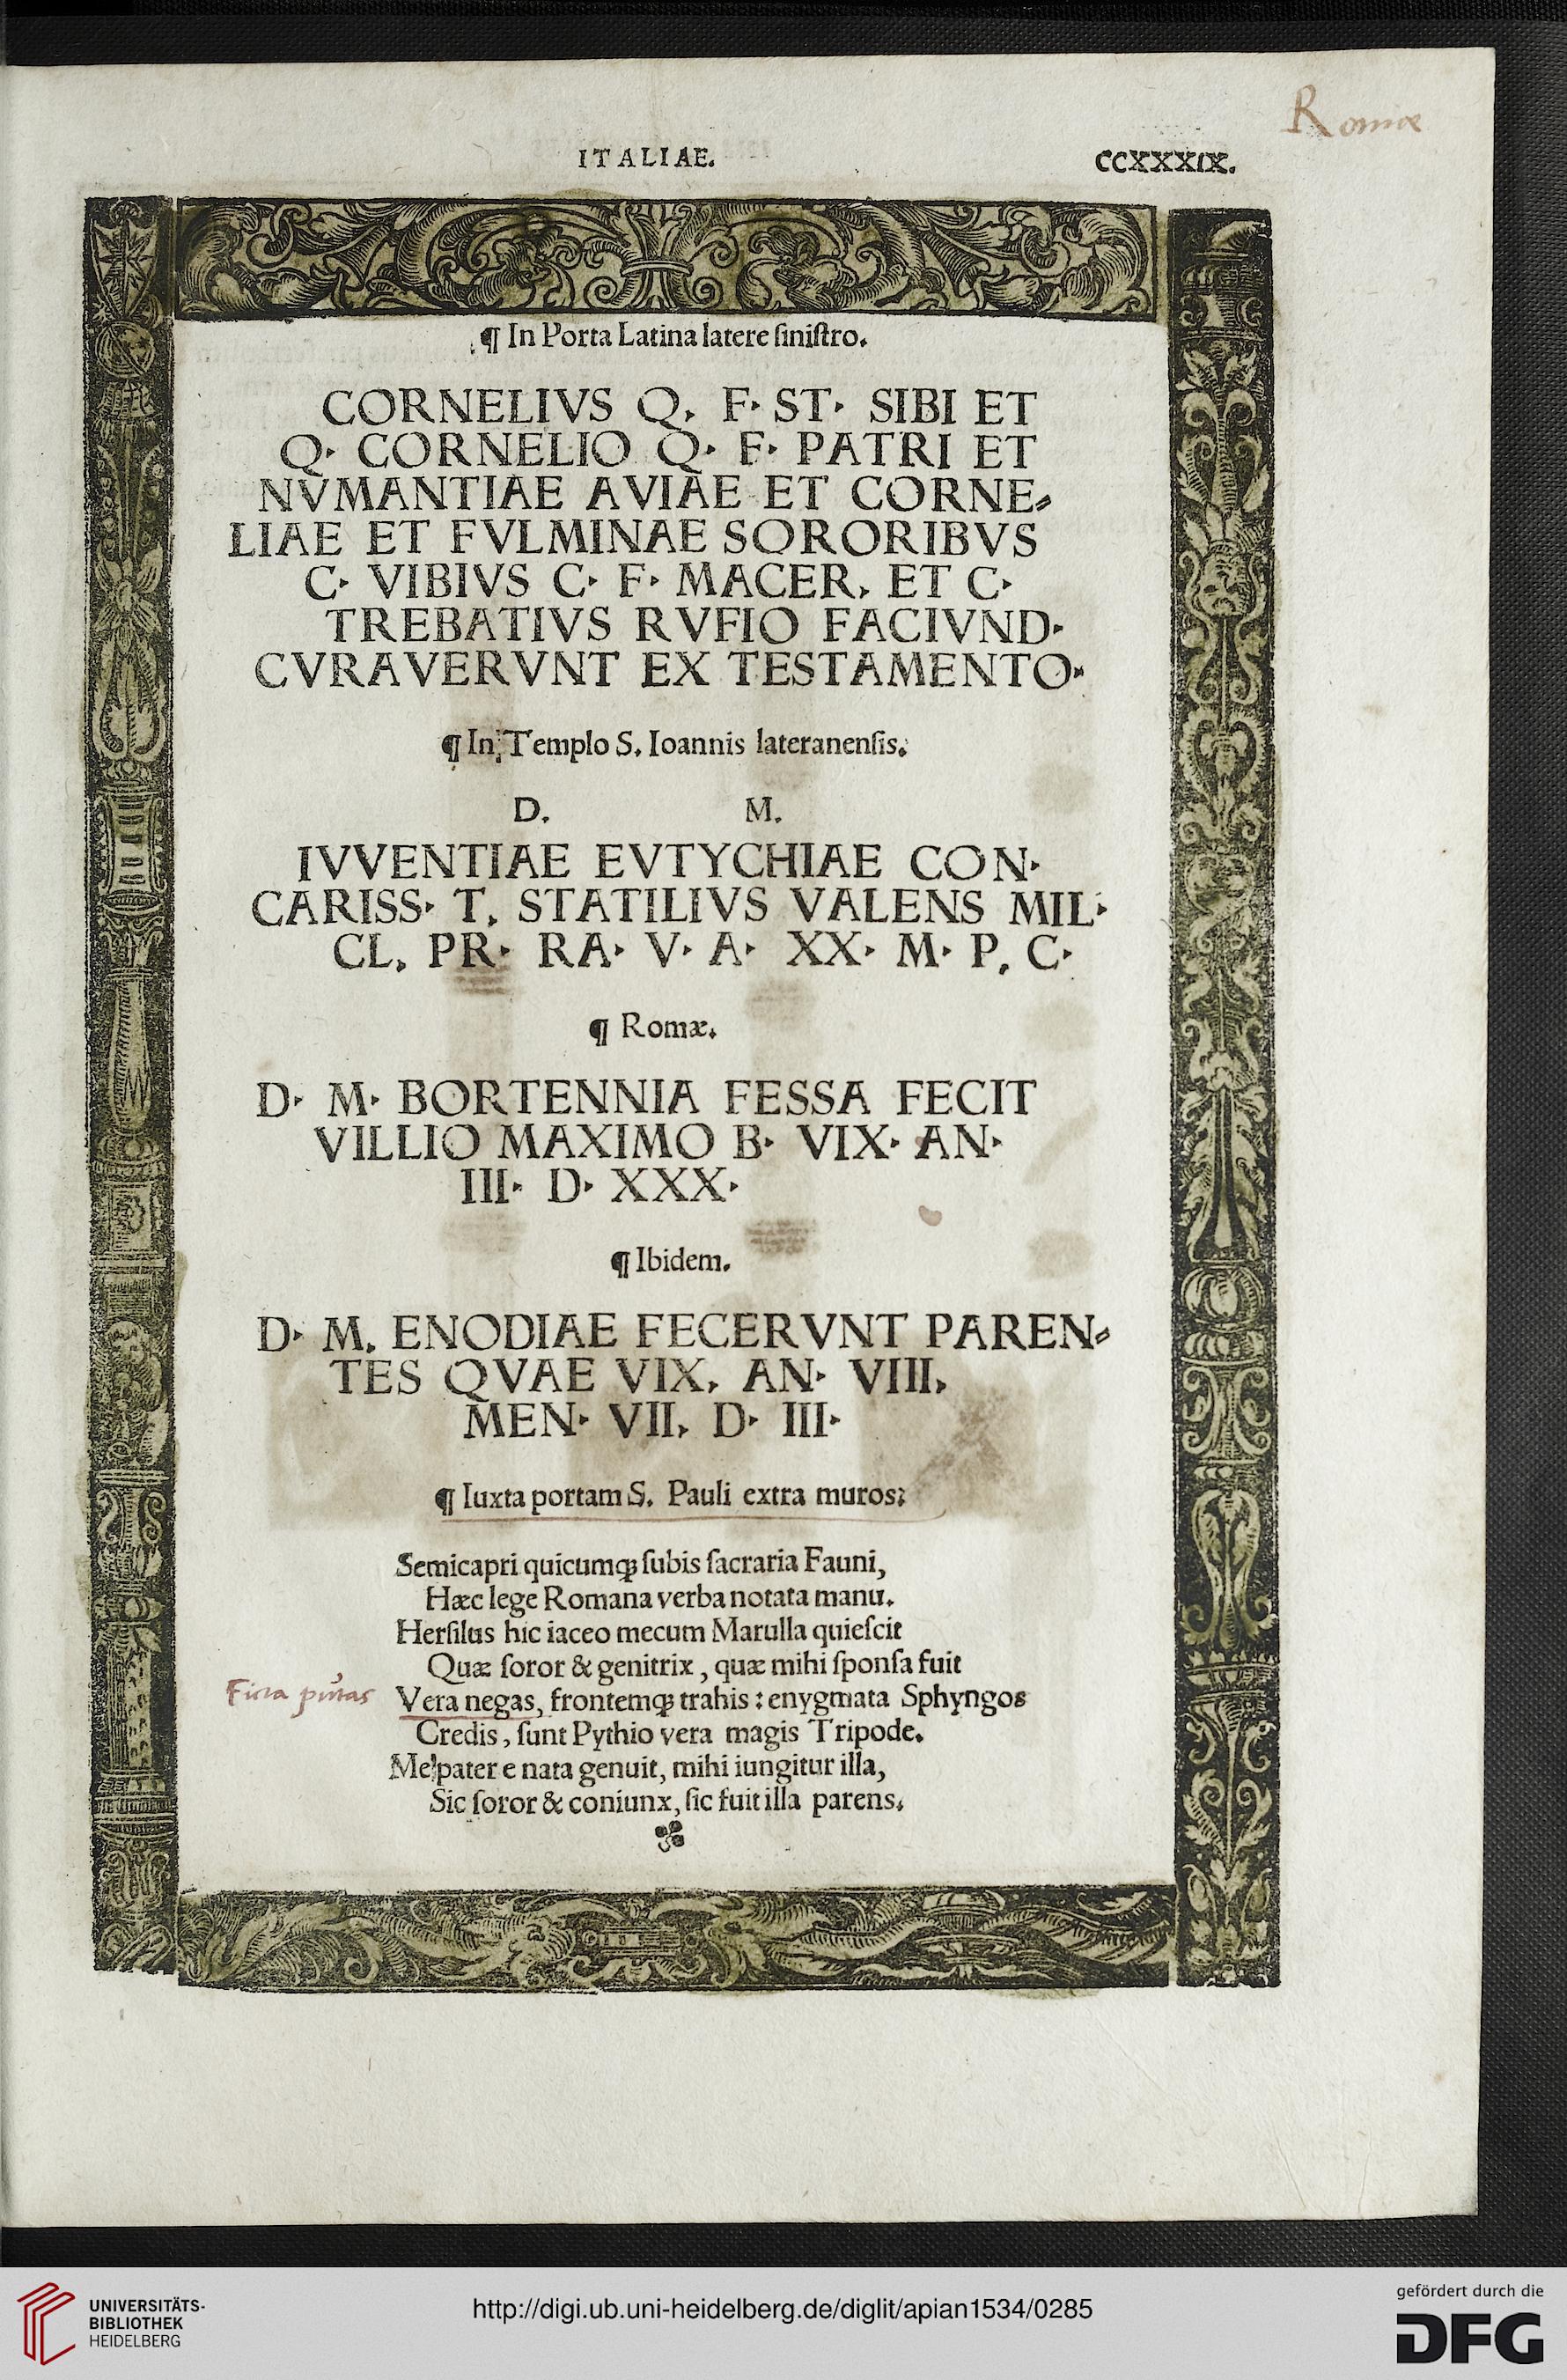 Romæ
ITALIAE. CCXXXIX.
¶ In Porta Latina latere ſiniſtro.
CORNELIVS Q. F. ST. SIBI ET
Q. CORNELIO Q. F. PATRI ET
NVMANTIAE AVIAE ET CORNE⸗
LIAE ET FVLMINAE SORORIBVS
C. VIBIVS C. F. MACER, ET C.
TREBATIVS RVFIO FACIVND.
CVRAVERVNT EX TESTAMENTO.
¶ In Templo S. Ioannis lateranenſis.
D. M.
IVVENTIAE EVTYCHIAE CON.
CARISS. T. STATILIVS VALENS MIL.
CL. PR. RA. V. A. XX. M. P. C.
¶ Romæ.
D. M. BORTENNIA FESSA FECIT
VILLIO MAXIMO B. VIX. AN.
III. D. XXX.
¶ Ibidem.
D. M. ENODIAE FECERVNT PAREN⸗
TES QVAE VIX. AN. VIII.
MEN. VII. D. III.
¶ Iuxta portam S. Pauli extra muros:
Semicapri quicumqꝫ ſubis ſacraria Fauni,
Hæc lege Romana verba notata manu.
Herſilus hic iaceo mecum Marulla quieſcit
Quæ ſoror & genitrix, quæ mihi ſponſa fuit
Ficta putas Vera negas, frontemqꝫ trahis : enygmata Sphyngos
Credis, ſunt Pythio vera magis Tripode.
Me pater e nata genuit, mihi iungitur illa,
Sic ſoror & coniunx, ſic fuit illa parens.
UNIVERSITÄTS-
BIBLIOTHEK
HEIDELBERG
http://digi.ub.uni-heidelberg.de/diglit/apian1534/0285
gefördert durch die
DFG